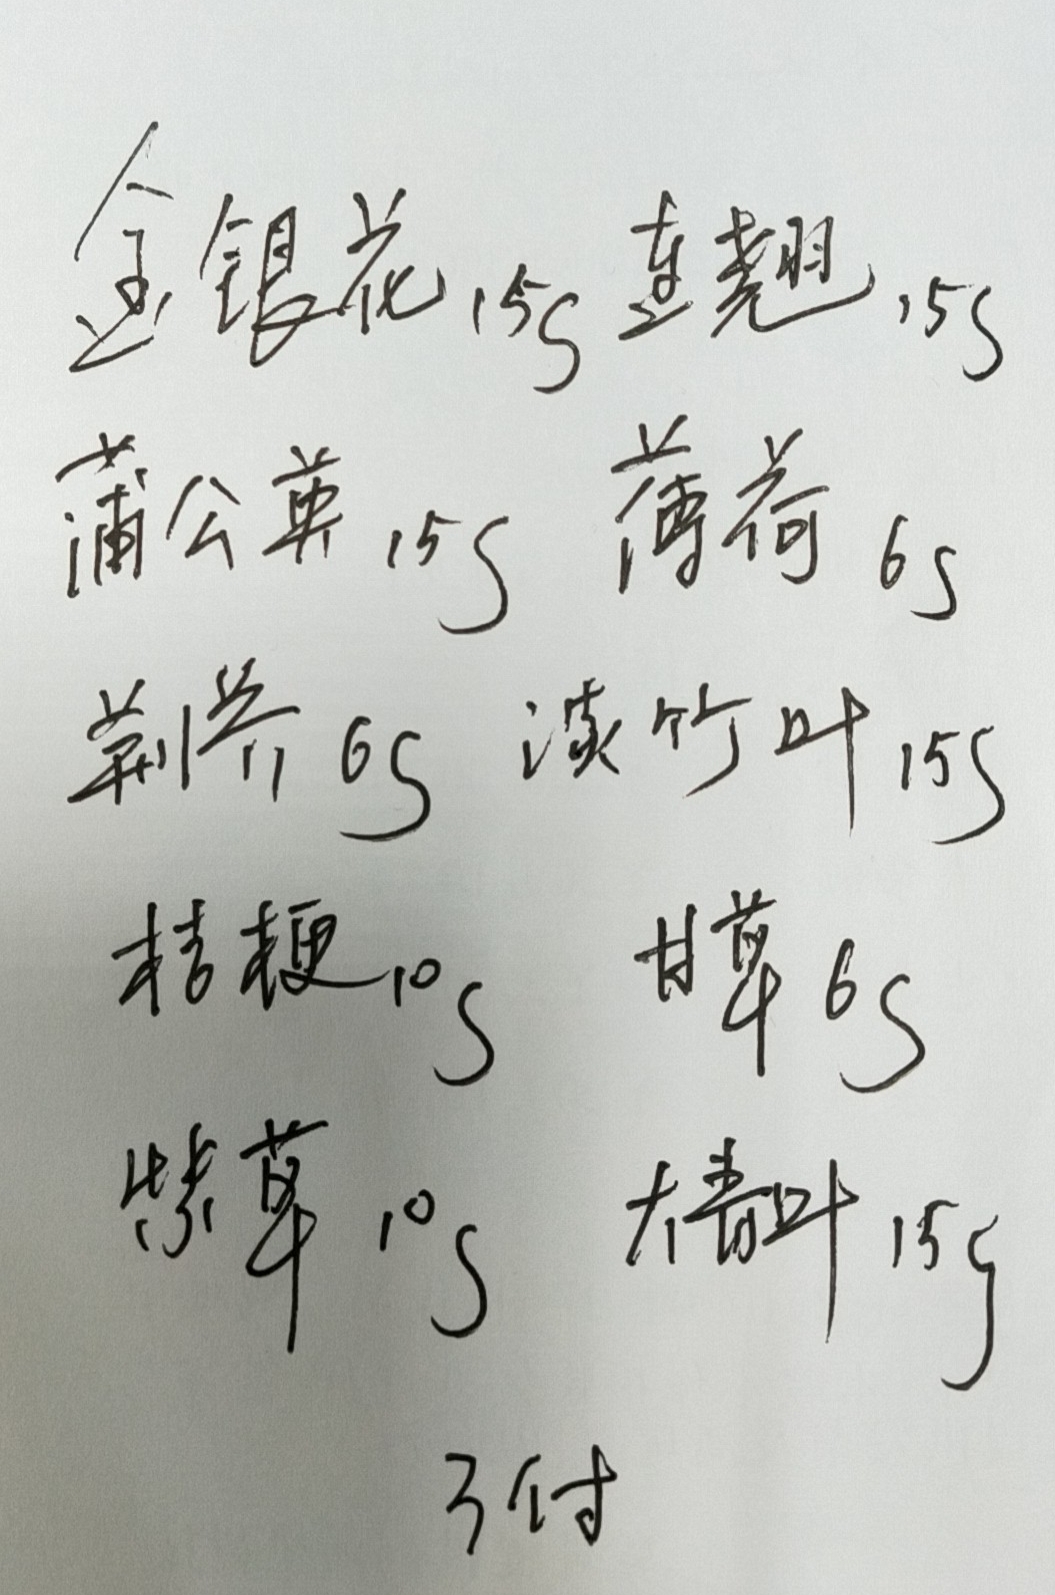 金银花15g 连翘15g
蒲公英15g 薄荷6g
荆芥6g 淡竹叶15g
桔梗10g 甘草6g
紫草10g 大青叶15g
3付